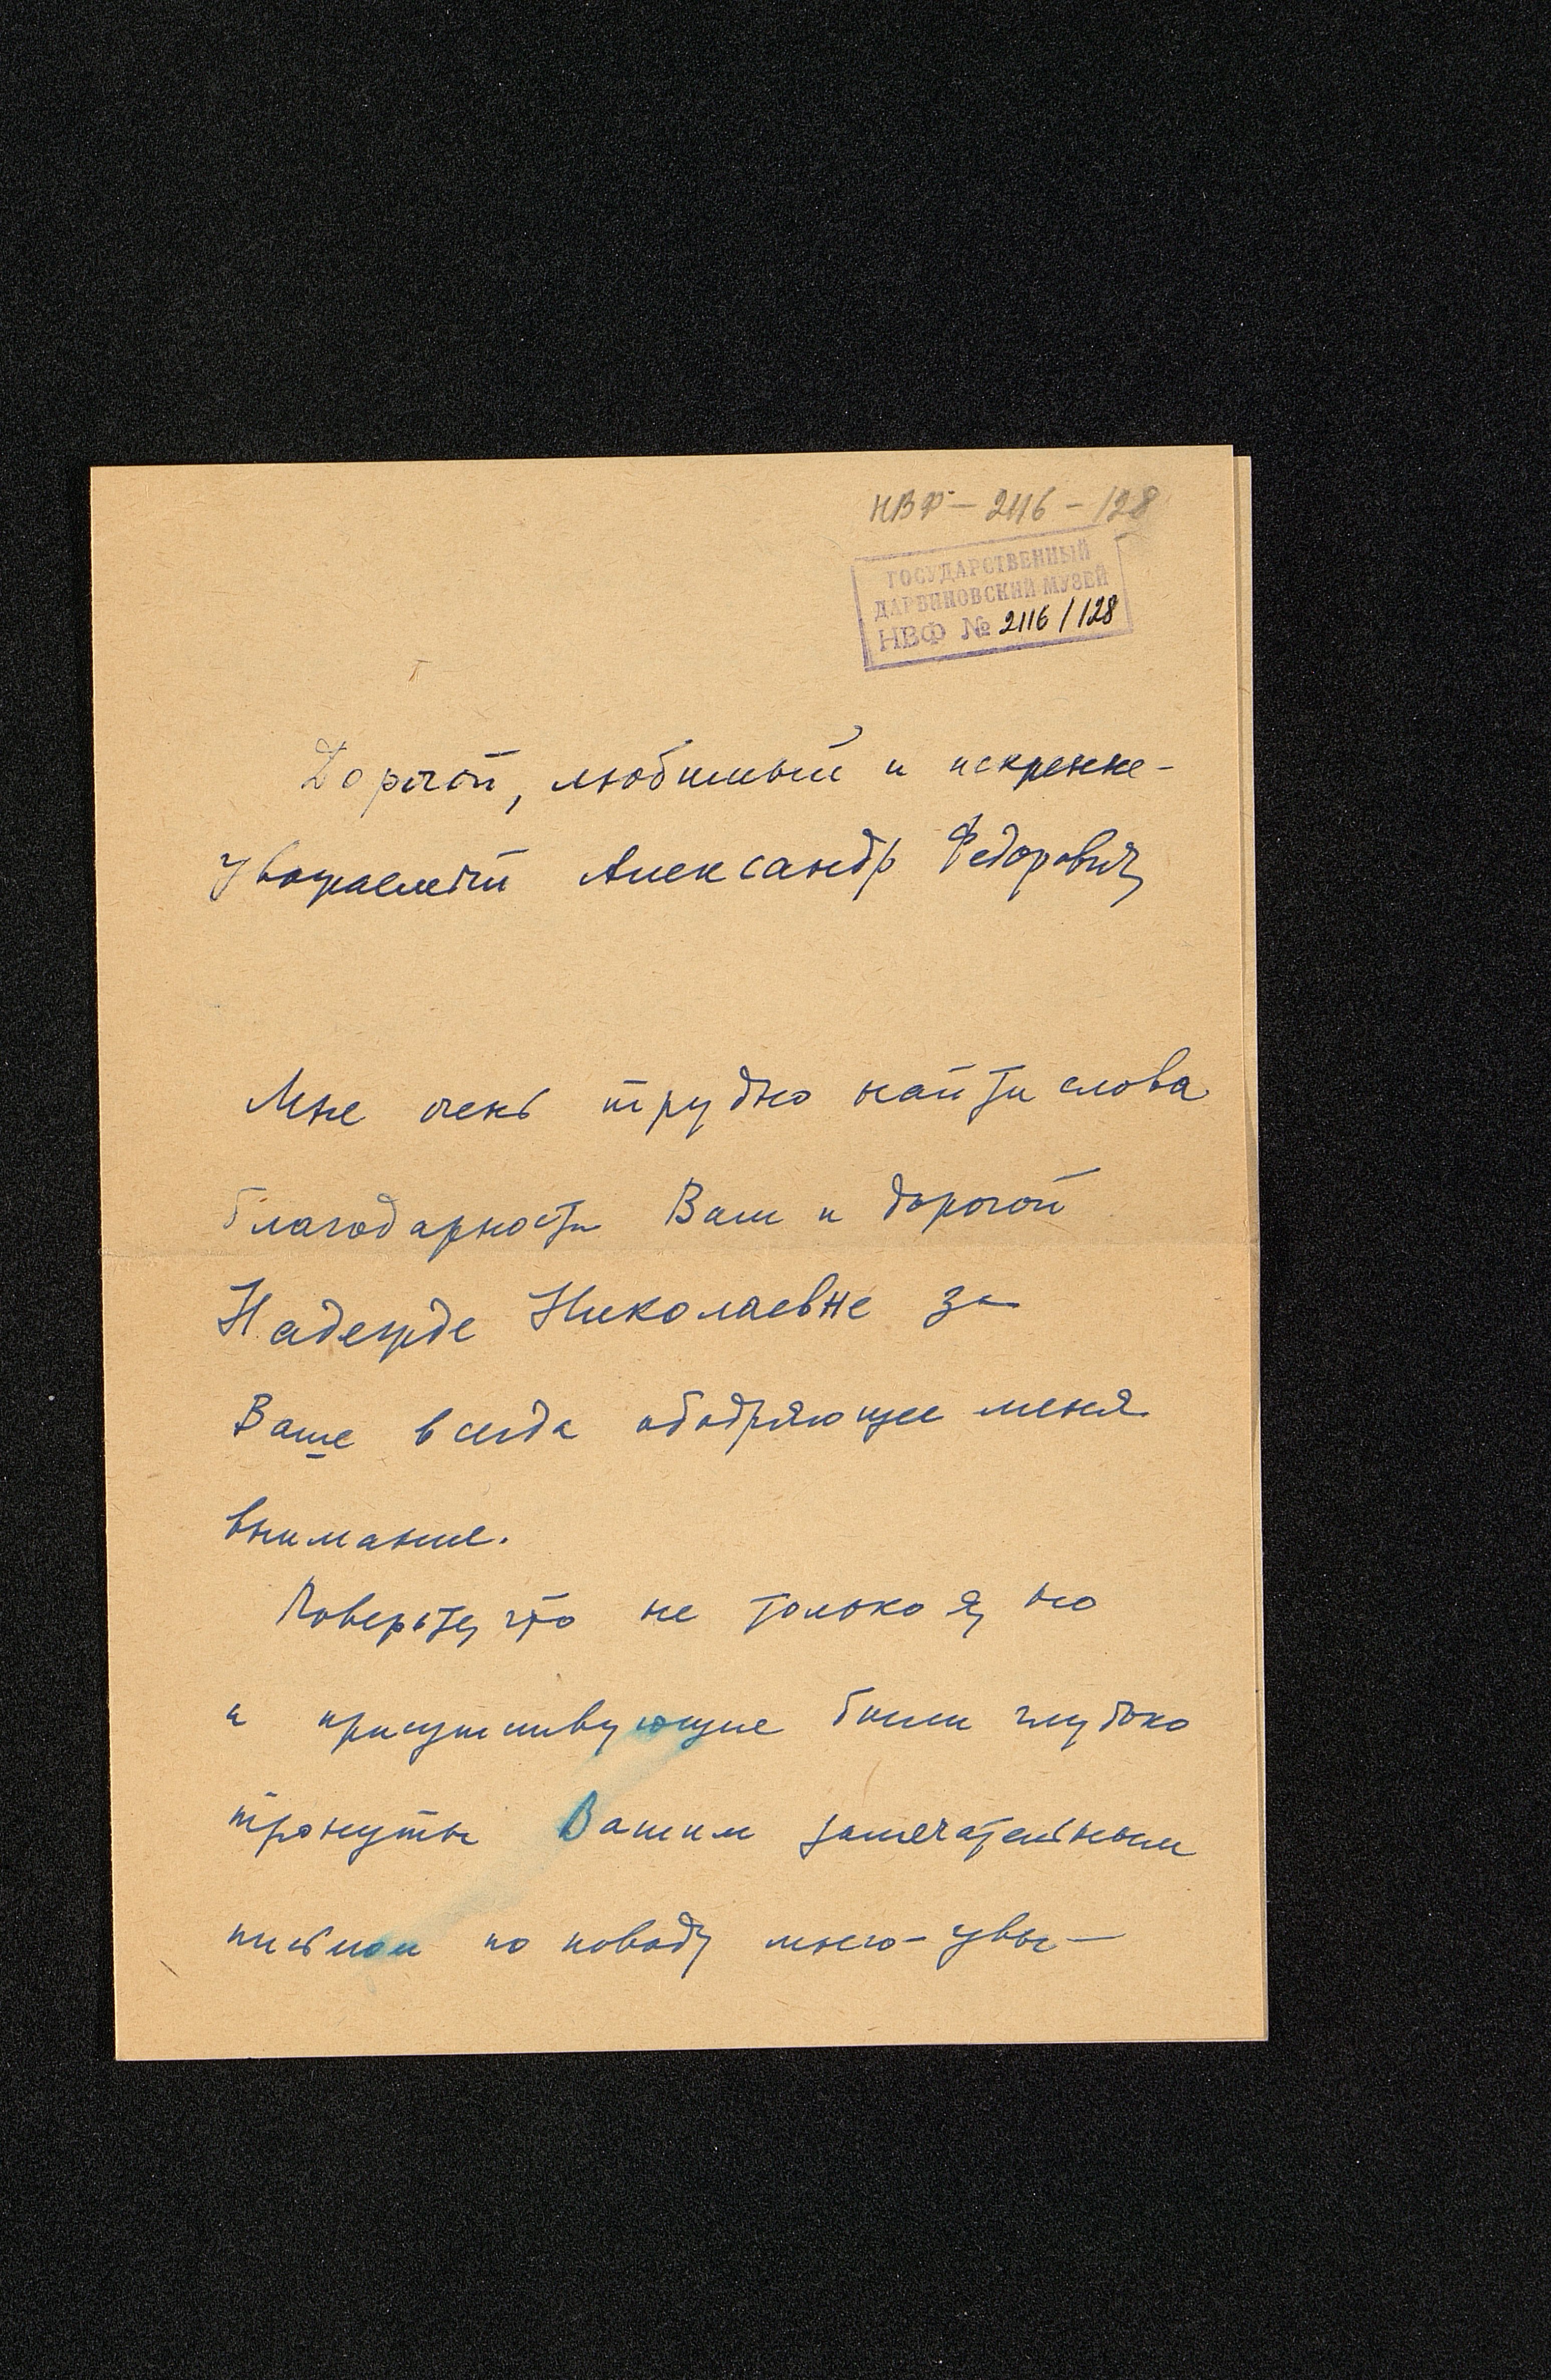 НВФ - 2116 - 128
ГОСУДАРСТВЕННЫЙ
ДАРВИНОВСКИЙ МУЗЕЙ
НВФ № 2116/128
Дорогой, любимый и искренне-
уважаемый Александр Федорович
Мне очень трудно найти слова
благодарности Вам и дорогой
Надежде Николаевне за
Ваше всегда ободряющее меня
внимание.
Поверьте, что не только я, но
и присутствующие были глубоко
тронуты Вашим замечательным
письмом по поводу моего - увы -